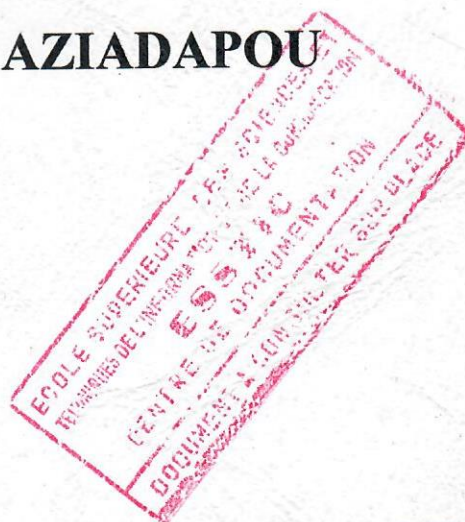 AZIADAPOU
ECOLE SUPERIEURE DES SCIENCES ET
TECHNIQUES DE L'INFORMATION DE LA COMMUNICATION
ESSTIC
CENTRE DE DOCUMENTATION
DOCUMENT A CONSULTER SUR PLACE